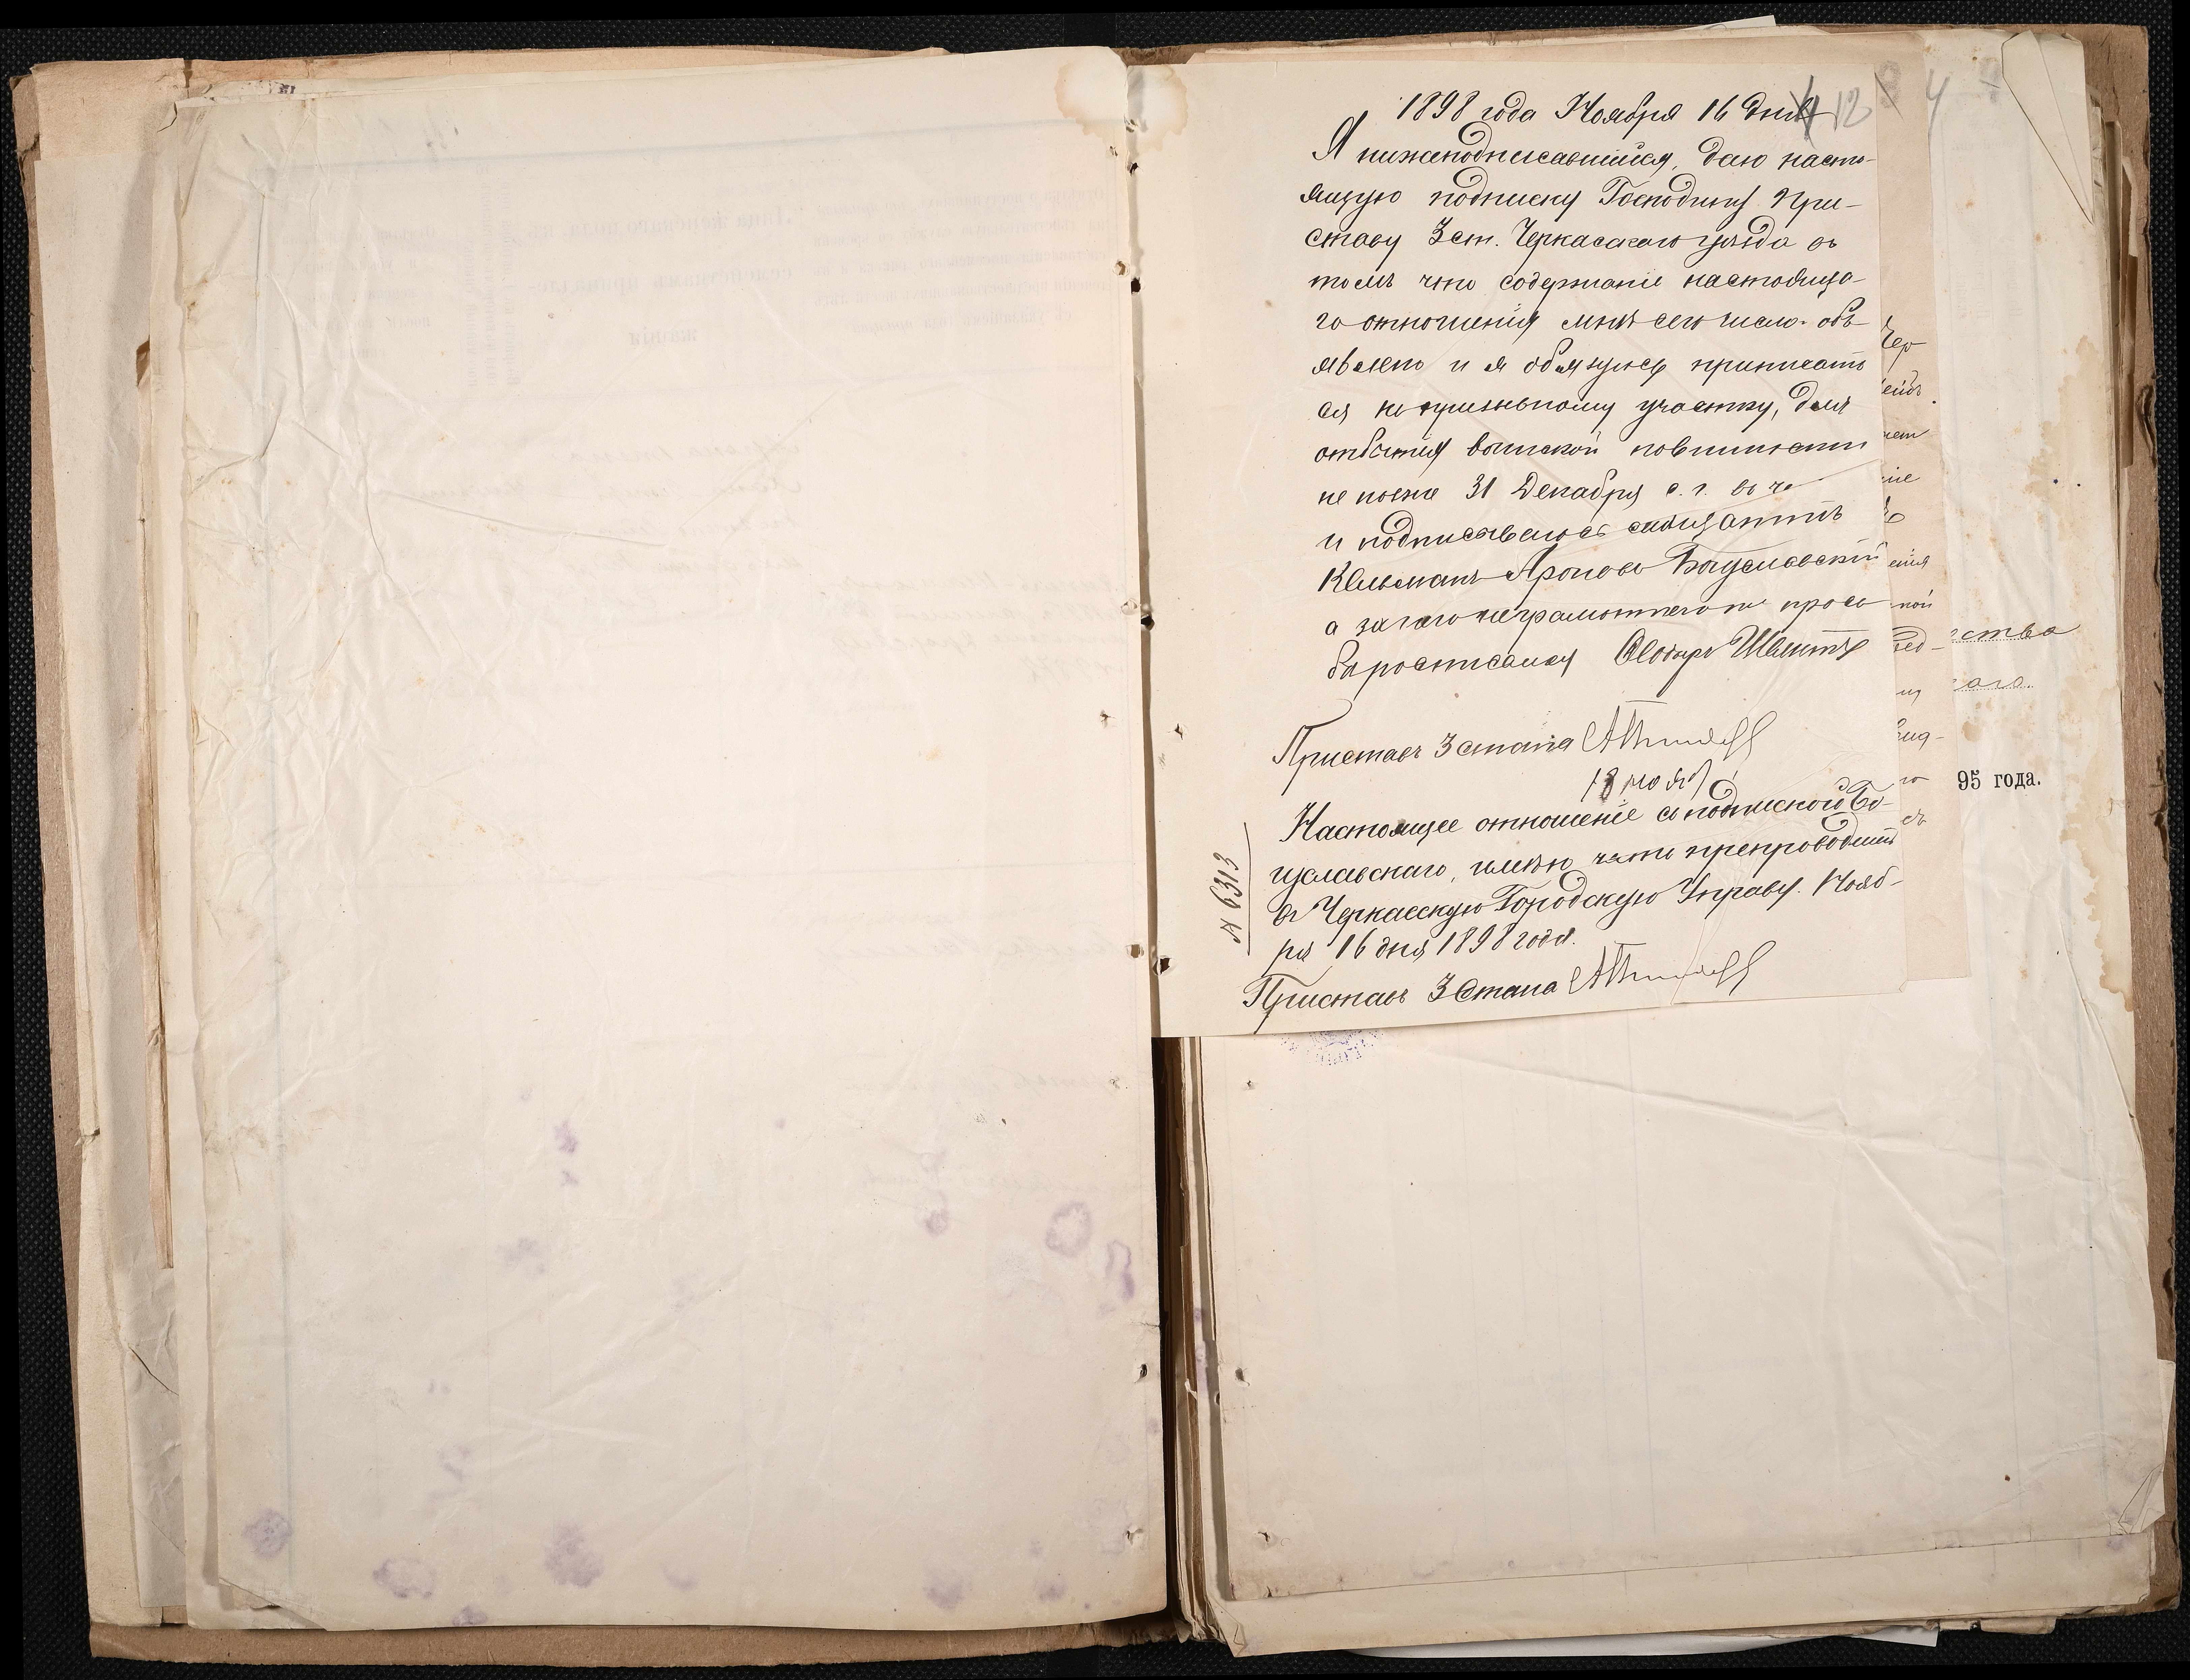 1898 года Ноября 16 дня
12
4
Я нижеподписавшійся, даю насто-
ящую подписку Господину При-
ставу 3 ст. Черкасскаго уѣзда въ
томъ что содержаніе настояща-
го отношенія мнѣ сего числа объ-
явлено и я обязуюсь приписать
ся к призывному участку, для
отбытія воинской повинности
не позже 31 Декабря с. г. въ че
и подписываюсь
Кельманъ Ароновъ Богуславскій
а за него неграмотнаго по прось
бѣ росписался
Приставъ 3 стана
18 нояб
Настоящее отношеніе съ подпиской Бо-
гуславскаго, имѣю честь препроводить
въ Черкасскую Городскую Управу. Нояб-
ря 16 дня 1898 года.
Приставъ 3 Стана
№ 6313
Чер
ства
аго.
95 года.